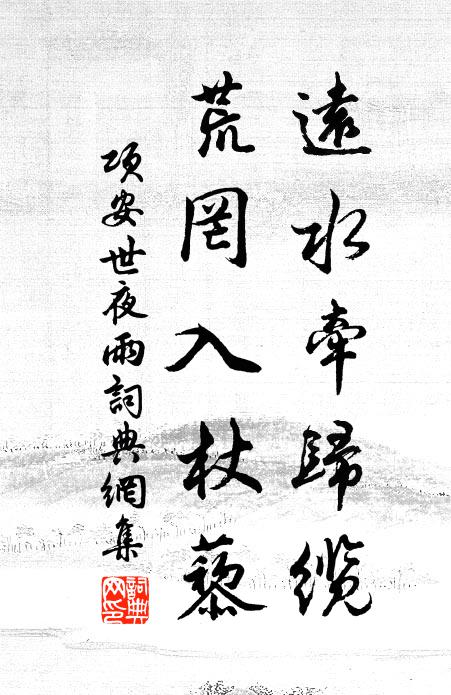 遠水牽歸纜
荒罔入杖藜
項安世夜雨詞典網集
詞典
网印